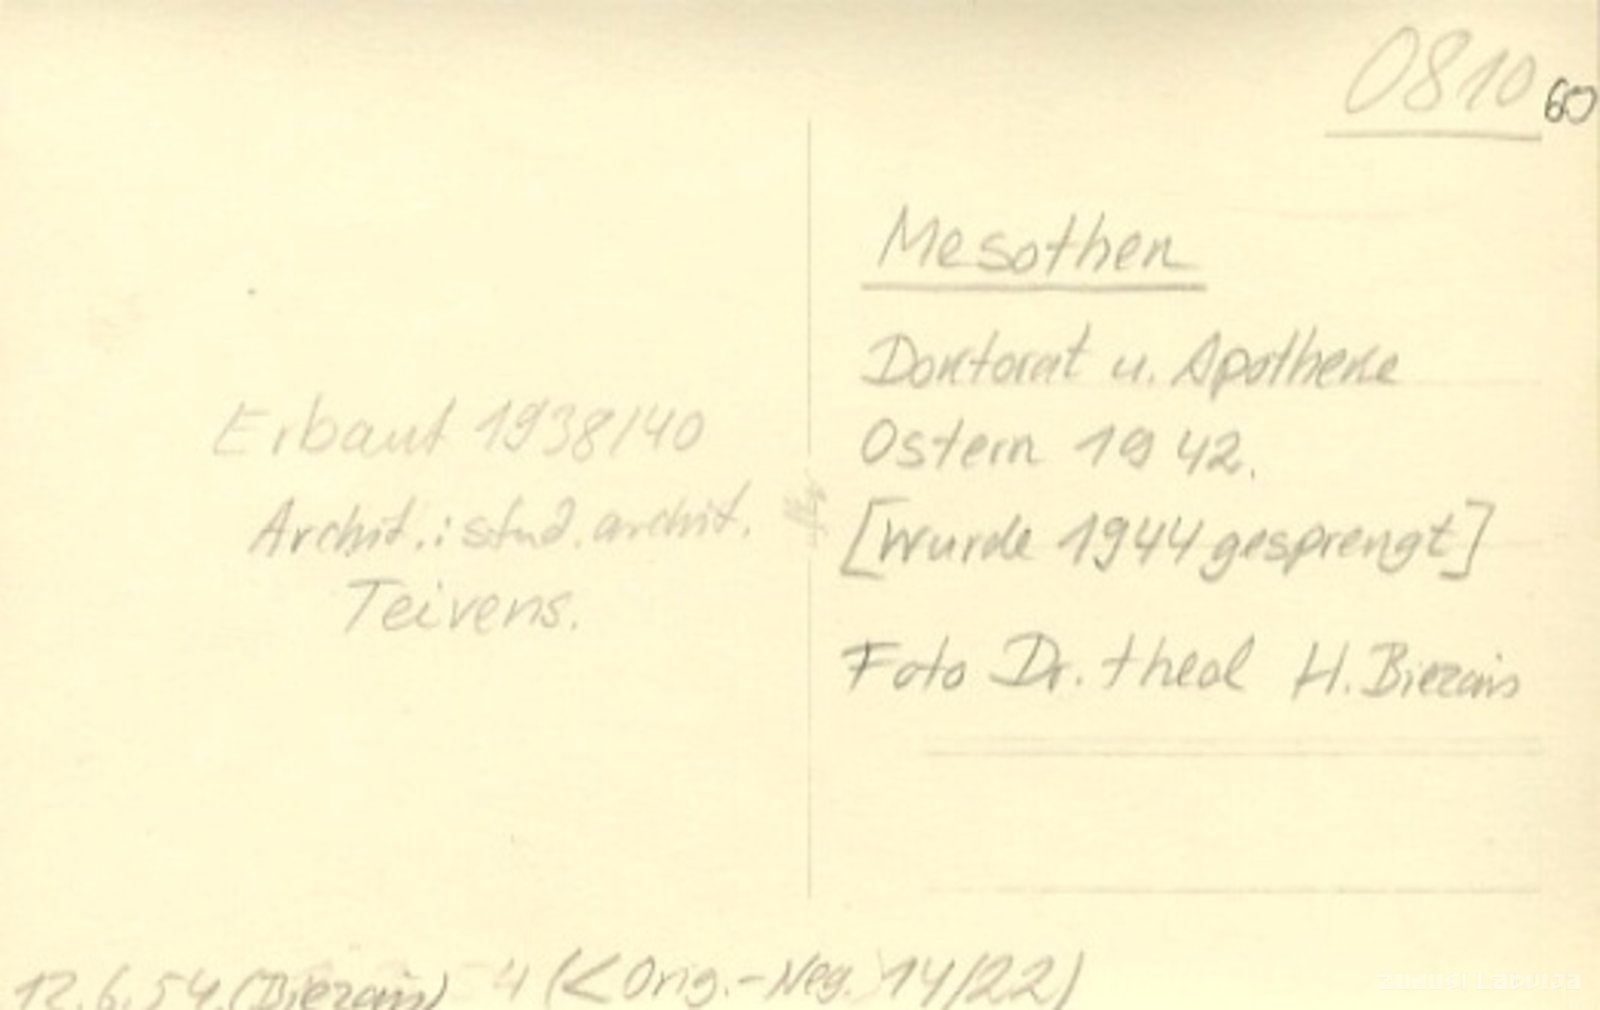 0810 60
Mesothen
Doktorat u. Apotheke
Ostern 1942.
[wurde 1944 gesprengt]
Foto Dr. theol H. Biezais
Erbaut 1938/40
Archit.: stud. archit.
Teivens.
12.6.54. (Biezais) 4 (< Orig.-Neg. 14/22)
Zudusi Latvija